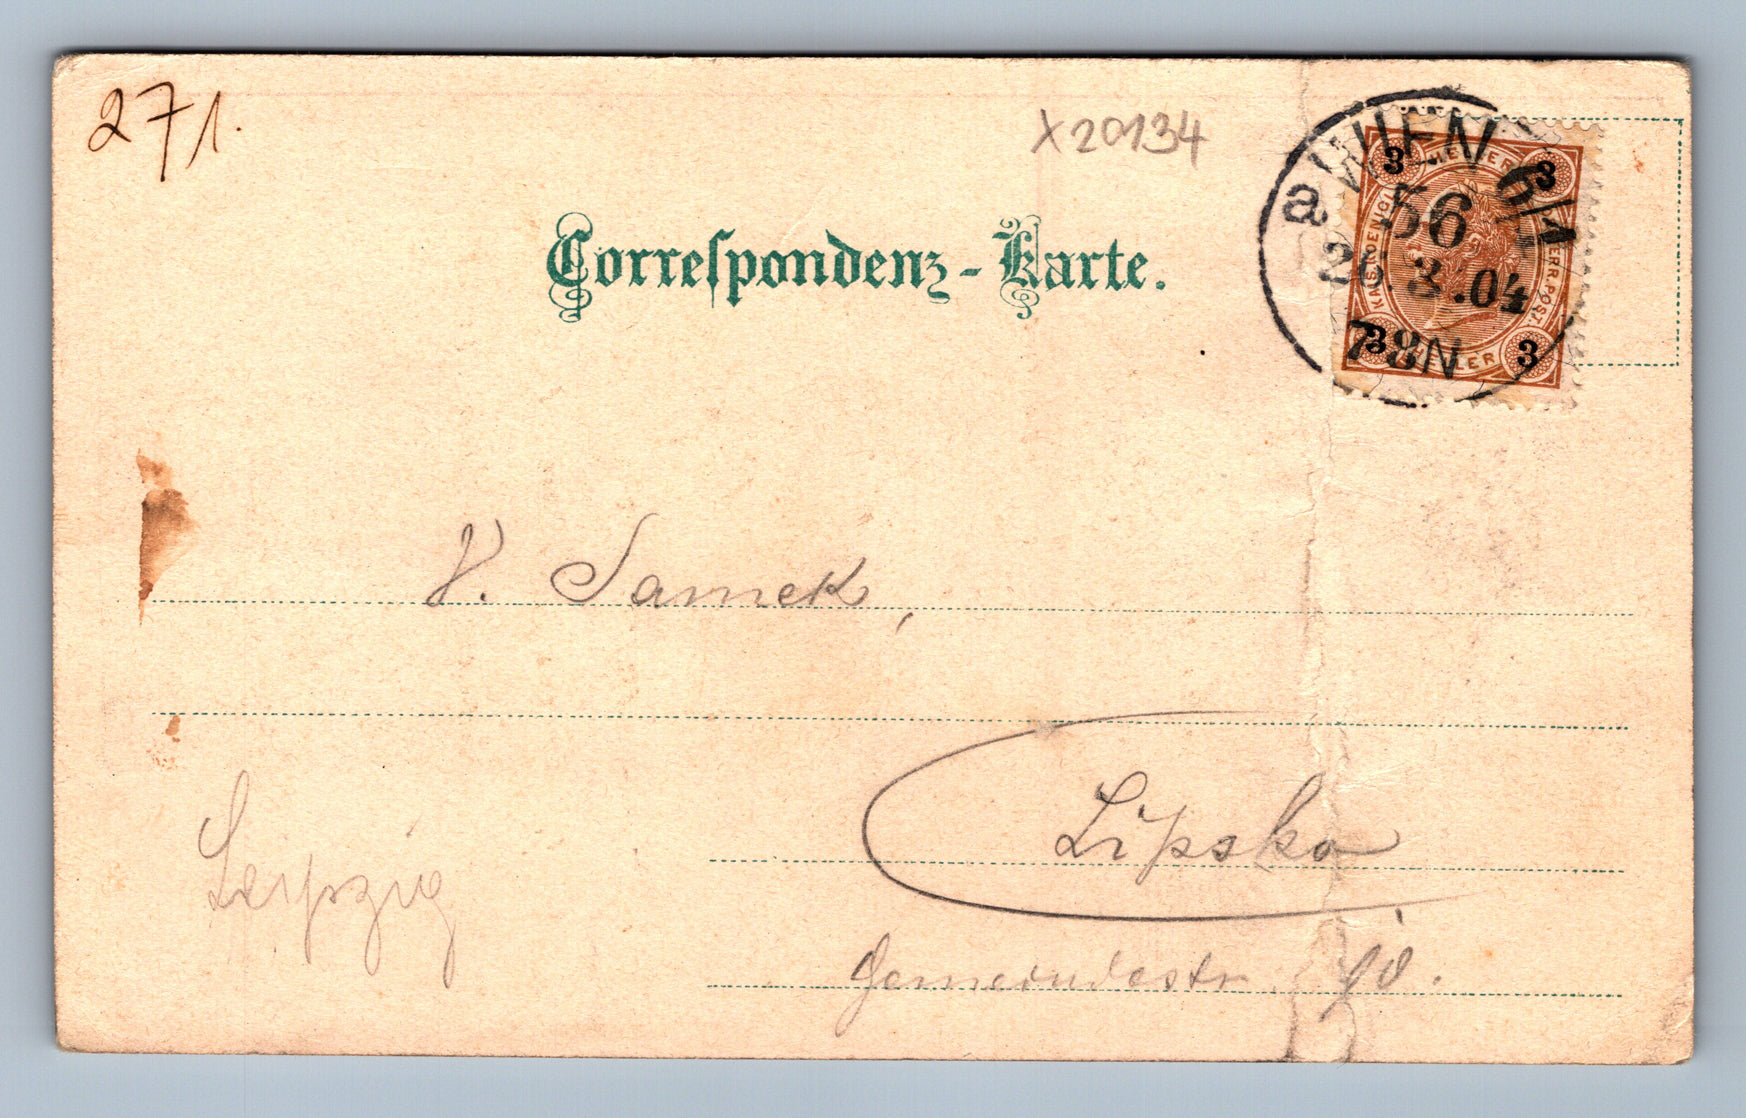 271.
X20134
Correspondenz-Karte.
a WIEN 6/1
56
26.3.04
7-8N
3 3
3 HELLER 3
V. Samek,
Lipsko
Leipzig
Gemeindestr